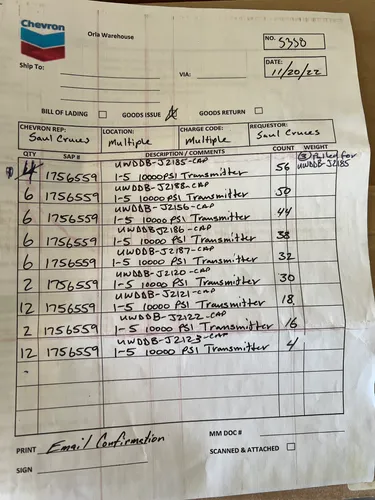 Chevron
Orla Warehouse
NO. 5358
Ship To:
VIA:
DATE: 11/20/22
BILL OF LADING GOODS ISSUE GOODS RETURN
CHEVRON REP: Saul Cruces
LOCATION: Multiple
CHARGE CODE: Multiple
REQUESTOR: Saul Cruces
QTY SAP # DESCRIPTION / COMMENTS COUNT WEIGHT
UWDDB-J2185-CAP
4 1756559 1-5 10000 PSI Transmitter 56
UWDDB-J2185
UWDDB-J2188-CAP
6 1756559 1-5 10000 PSI Transmitter 50
UWDDB-J2156-CAP
6 1756559 1-5 10000 PSI Transmitter 44
UWDDB-J2186-CAP
6 1756559 1-5 10000 PSI Transmitter 38
UWDDB-J2187-CAP
6 1756559 1-5 10000 PSI Transmitter 32
UWDDB-J2120-CAP
2 1756559 1-5 10000 PSI Transmitter 30
UWDDB-J2121-CAP
12 1756559 1-5 10000 PSI Transmitter 18
UWDDB-J2122-CAP
2 1756559 1-5 10000 PSI Transmitter 16
UWDDB-J2123-CAP
12 1756559 1-5 10000 PSI Transmitter 4
PRINT Email Confirmation
MM DOC #
SIGN
SCANNED & ATTACHED